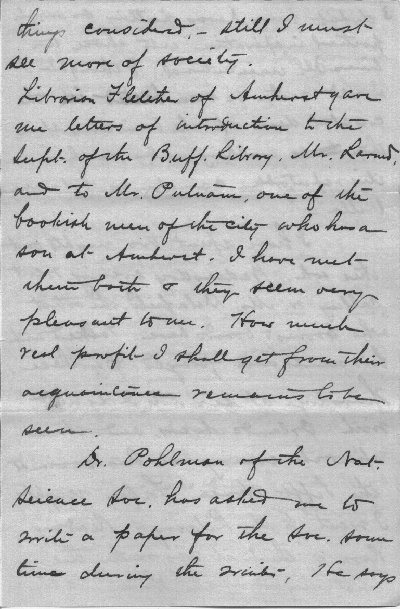 things considered, - still I must
see more of society.
Librarian Fletcher of Amherst gave
me letters of introduction to the
Supt. of the Buff. Library. Mr. Larned,
and to Mr. Putnam, one of the
bookish men of the city who has a
son at Amherst. I have met
them both & they seem very
pleasant to me. How much
real profit I shall get from their
acquaintance remains to be
seen.
Dr. Pohlman of the Nat.
Science Soc. has asked me to
write a paper for the Soc. some
time during the winter, He says